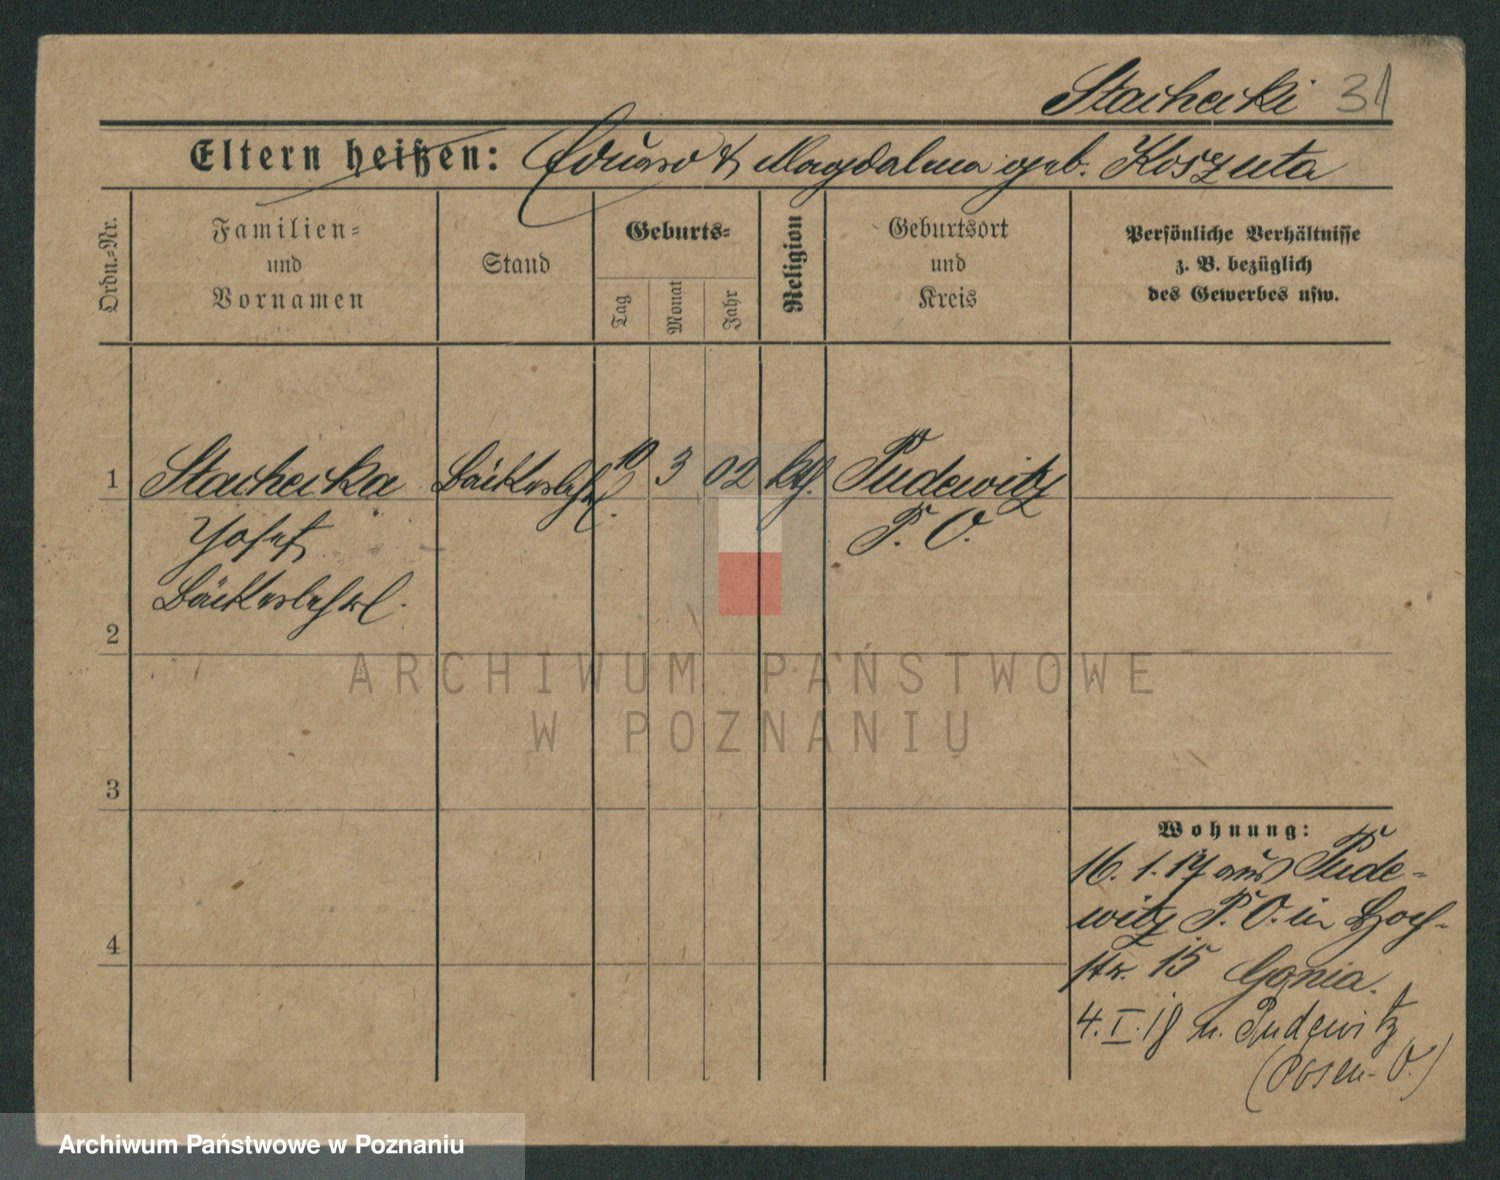 Stachecki 31
Eltern heißen: Eduard & Magdalena geb. Koszuta
Ordn.-Nr.
Familien-
und
Vornamen
Stand
Geburts-
Tag
Monat
Jahr
Religion
Geburtsort
und
Kreis
Persönliche Verhältnisse
z. B. bezüglich
des Gewerbes usw.
1 Stachecka Bäckerlehrl. 10 3 02 kth. Pudewitz
Josef P. O.
Bäckerlehrl.
2
3
4
Wohnung:
16. 1. 17 aus Pude-
witz P. O. in Hoch-
str. 15
4. I. 18 n. Pudewitz
(Posen-O.)
ARCHIWUM PAŃSTWOWE
W POZNANIU
Archiwum Państwowe w Poznaniu